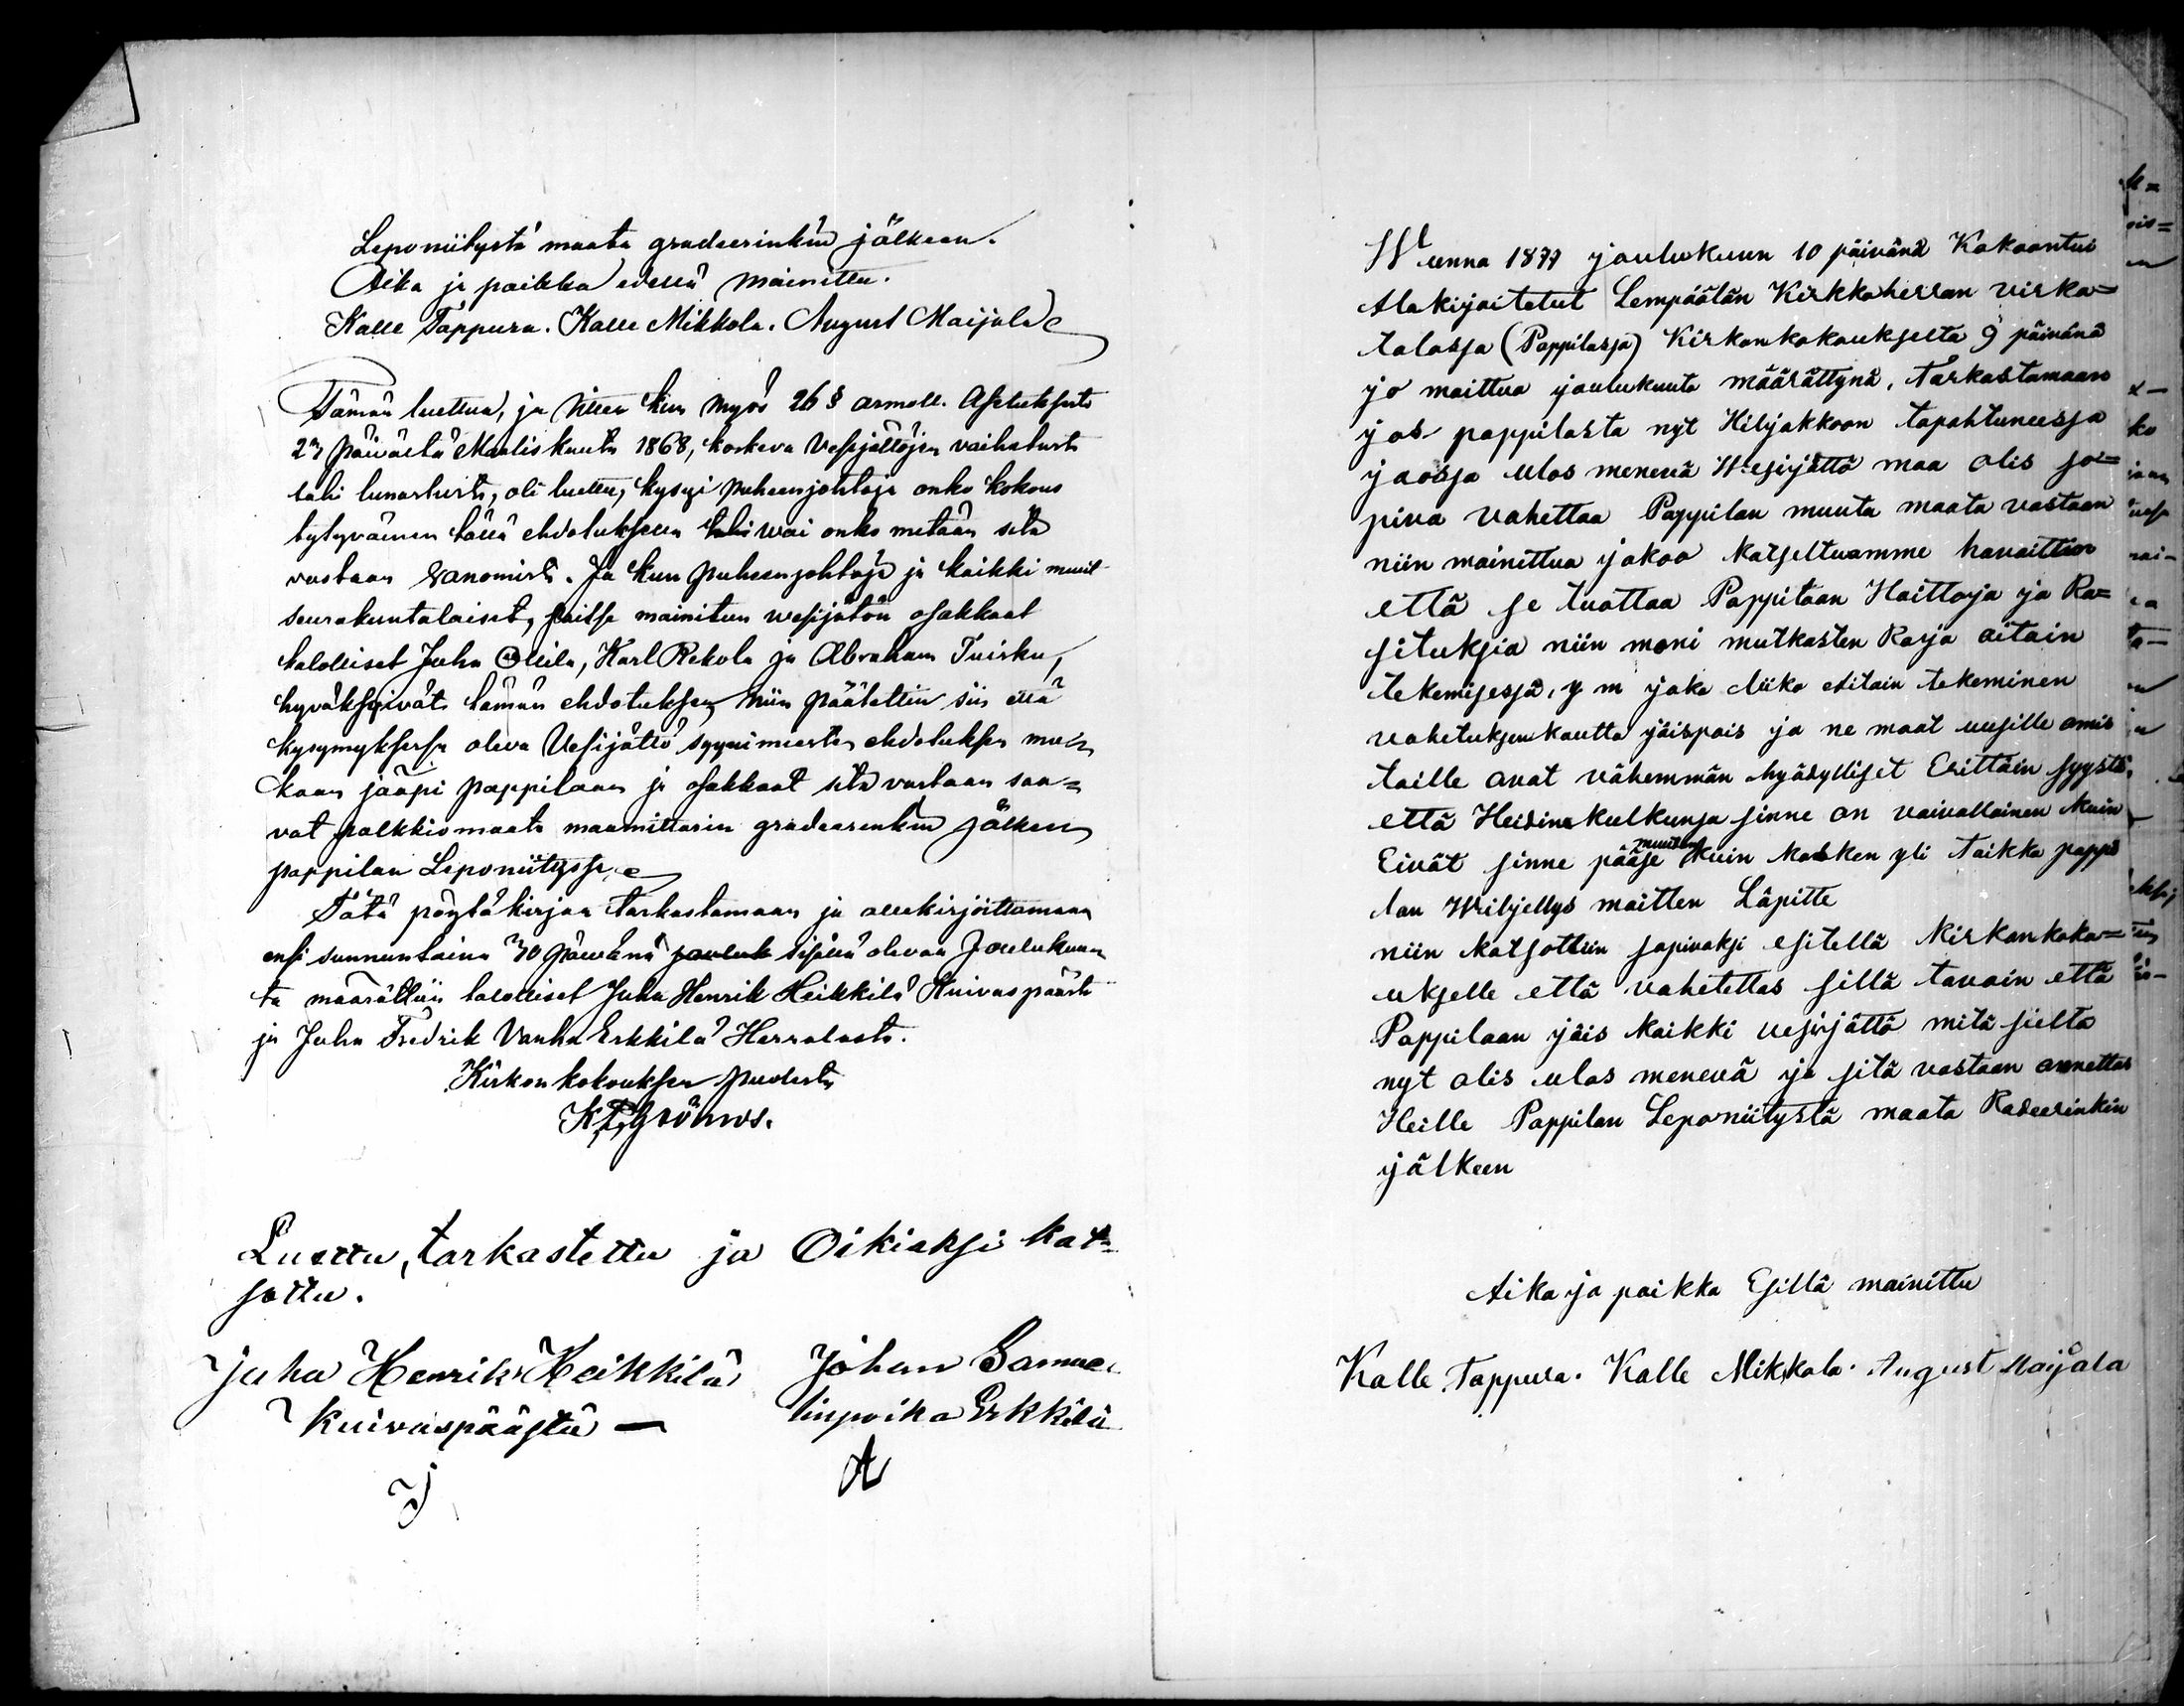 Leponiitystä maata gradeerinkin jälkeen.
Aika ja paikka edessä mainittu.
Kalle Tappura. Kalle Mikkola. August Maijala
Tämän luettua, ja sitten kun myös 26 § armoll. Asetuksesta
2 päivästä Maaliskuuta 1868, koskeva Vesijättöjen vaihetusta
tahi lunastusta, oli luettu, kysyi puheenjohtaja onko kokous
tytyväinen tässä ehdotukseen tahi wai onko mitään sitä
vastaan sanomista. Ja kun puheenjohtaja ja kaikki muut
seurakuntalaiset, paitse mainitun wesijätön osakkaat
talolliset Juha Ollila, Karl Rekola ja Abraham Tuirku,
hyväksyivät tämän ehdotuksen, niin päätettiin siis että
kysymyksessä oleva Vesijättö syynimiesten ehdotuksen mu-
kaan jääpi pappilaan ja osakkaat sitä vastaan saa=
vat palkkiomaata maamittarin gradeerinkin jälkeen
pappilan Leponiityssä.
Tätä pöytäkirjaa tarkastamaan ja allekirjoittamaan
ensi sunnuntaina 30 päivänä jouluk sisällä olevan Joulukuu-
ta määrättiin talolliset Juha Henrik Heikkilä Kuivaspäästä
ja Juha Fredrik Vanha Erkkilä Herralasta.
Kirkonkokouksen puolesta
K. F. Grönros.
Luettu, tarkastettu ja Oikiaksi kat-
sottu.
Juha Henrik Heikkilä Johan Samue-
Kuivaspäästä — linpoika Erkkilä
Wuonna 1877 joulukuun 10 päivänä Kokoontui
Alakirjoitetut Lempäälän Kirkkoherran virka=
talossa (Pappilassa) Kirkonkokoukselta 9 päivänä
jo maittua joulukuuta määrättynä, Tarkastamaan
jos pappilasta nyt Hiljakkoon tapahtuneessa
jaossa ulos menevä Wesijättö maa olis so=
piva vahettaa Pappilan muuta maata vastaan
niin mainittua jakoa katseltuamme havaittiin
että se tuottaa Pappilaan Haittoja ja Ra=
situksia niin moni mutkasten Raja aitain
tekemisessä, y m joka liika aitain tekeminen
vahetuksen kautta jäispois ja ne maat uusille omis
taille ovat vähemmän hyödylliset Erittäin syystä,
että Heidän kulkunsa sinne on vaivallainen kuin
Eivät sinne pääse muutoin kuin kosken yli taikka pappi
lan Wiljellys maitten Läpitte
niin katsottiin sopivaksi esitellä kirkonkoko=
ukselle että vahetettas sillä tavoin että
Pappilaan jäis kaikki vesijättö mitä sielto
nyt olis ulos menevä ja sitä vastaan annettas
Heille Pappilan Leponiitystä maata Radeerinkin
jälkeen
Aika ja paikka Esillä mainittu
Kalle Tappura. Kalle Mikkola. August Maijala